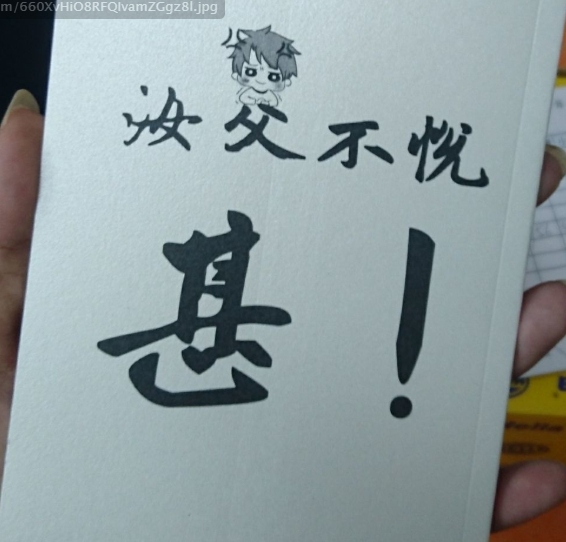 m/660XvHiO8RFQIvamZGgz8l.jpg
汝父不悦
甚！